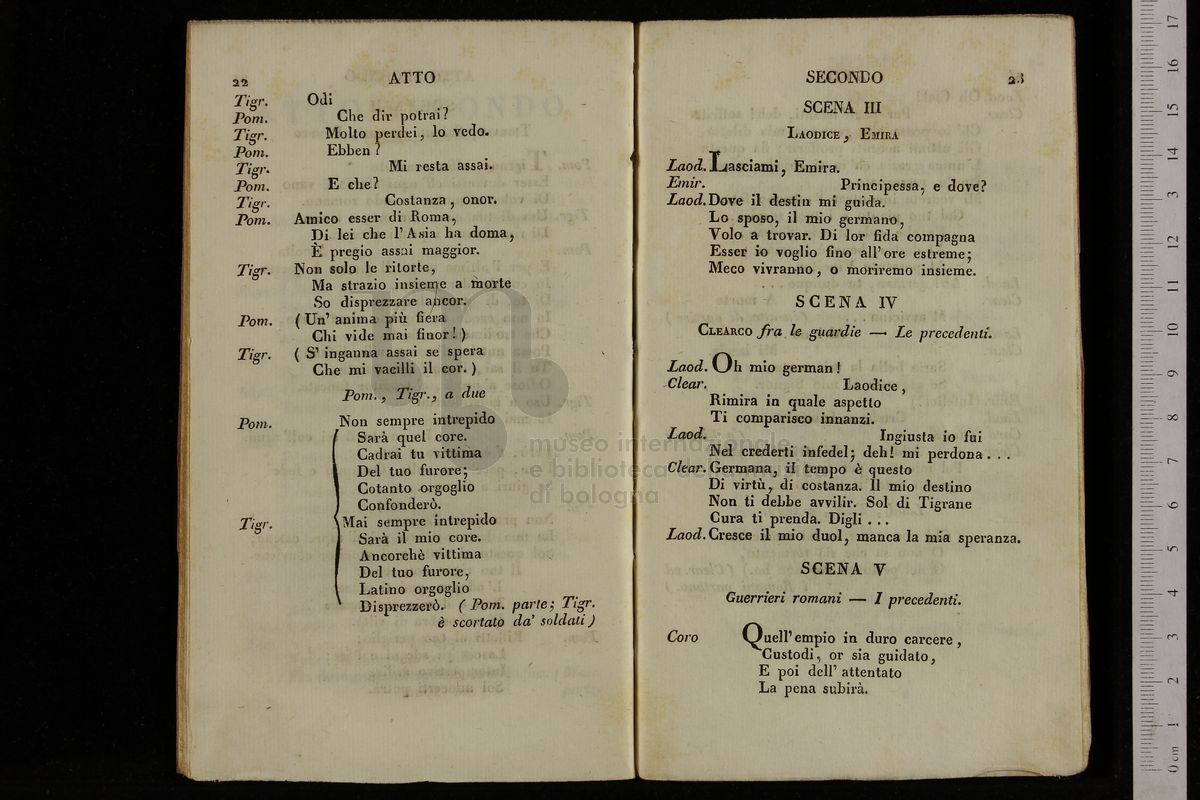 22 ATTO
Tigr. Odi
Pom. Che dir potrai?
Tigr. Molto perdei, lo vedo.
Pom. Ebben?
Tigr. Mi resta assai.
Pom. E che?
Tigr. Costanza, onor.
Pom. Amico esser di Roma,
Di lei che l'Asia ha doma,
È pregio assai maggior.
Tigr. Non solo le ritorte,
Ma strazio insieme a morte
So disprezzare ancor.
Pom. (Un' anima più fiera
Chi vide mai finor!)
Tigr. (S' inganna assai se spera
Che mi vacilli il cor.)
Pom., Tigr., a due
Pom. Non sempre intrepido
Sarà quel core.
Cadrai tu vittima
Del tuo furore;
Cotanto orgoglio
Confonderò.
Tigr. Mai sempre intrepido
Sarà il mio core.
Ancorchè vittima
Del tuo furore,
Latino orgoglio
Disprezzerò. (Pom. parte; Tigr.
è scortato da' soldati)
SECONDO 23
SCENA III
LAODICE, EMIRA
Laod. Lasciami, Emira.
Emir. Principessa, e dove?
Laod. Dove il destin mi guida.
Lo sposo, il mio germano,
Volo a trovar. Di lor fida compagna
Esser io voglio fino all' ore estreme;
Meco vivranno, o moriremo insieme.
SCENA IV
CLEARCO fra le guardie — Le precedenti.
Laod. Oh mio german!
Clear. Laodice,
Rimira in quale aspetto
Ti comparisco innanzi.
Laod. Ingiusta io fui
Nel crederti infedel; deh! mi perdona...
Clear. Germana, il tempo è questo
Di virtù, di costanza. Il mio destino
Non ti debbe avvilir. Sol di Tigrane
Cura ti prenda. Digli...
Laod. Cresce il mio duol, manca la mia speranza.
SCENA V
Guerrieri romani — I precedenti.
Coro Quell' empio in duro carcere,
Custodi, or sia guidato,
E poi dell' attentato
La pena subirà.
museo internazionale
e biblioteca della musica
di bologna
0 cm 1 2 3 4 5 6 7 8 9 10 11 12 13 14 15 16 17